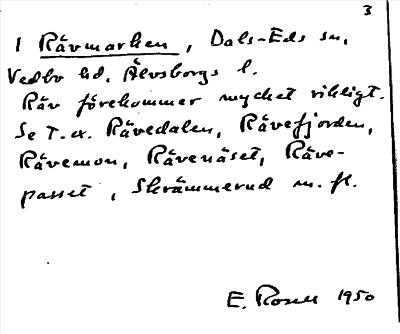 3
I Rävmarken, Dals-Eds sn,
Vedbo hd, Älvsborgs l.
Räv förekommer mycket rikligt.
Se t.ex. Rävedalen, Rävefjorden,
Rävemon, Rävenäset, Räve-
passet, Skrämmerud m. fl.
E. Rosell 1950